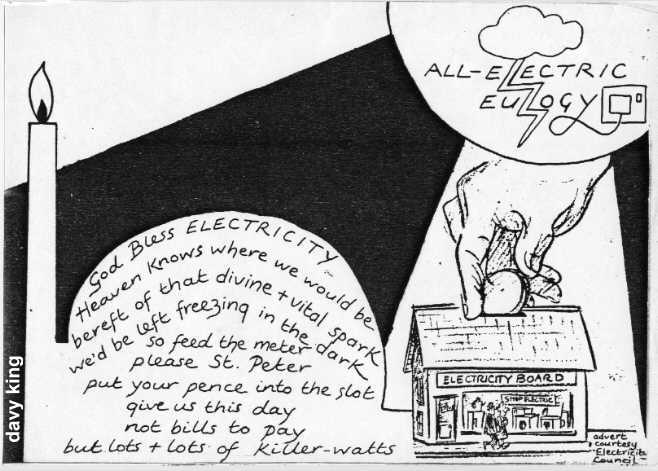 ALL-ELECTRIC
EULOGY
God Bless ELECTRICITY
Heaven Knows where we would be
bereft of that divine + vital spark
we'd be left freezing in the dark
so feed the meter
please St. Peter
put your pence into the slot
give us this day
not bills to pay
but lots + lots of Killer-watts
ELECTRICITY BOARD
SHOP ELECTRIC
advert
courtesy
Electricity
Council
davy king